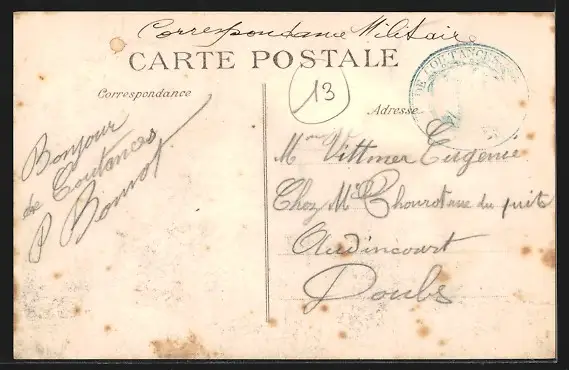 Correspondance Militaire
CARTE POSTALE
13
Correspondance
Adresse
DE COUTANCES
Bonjour
de Coutances
P Bonnot
Mme Vittmer Eugenie
Chez Mr Chourot rue du puits
Audincourt
Doubs